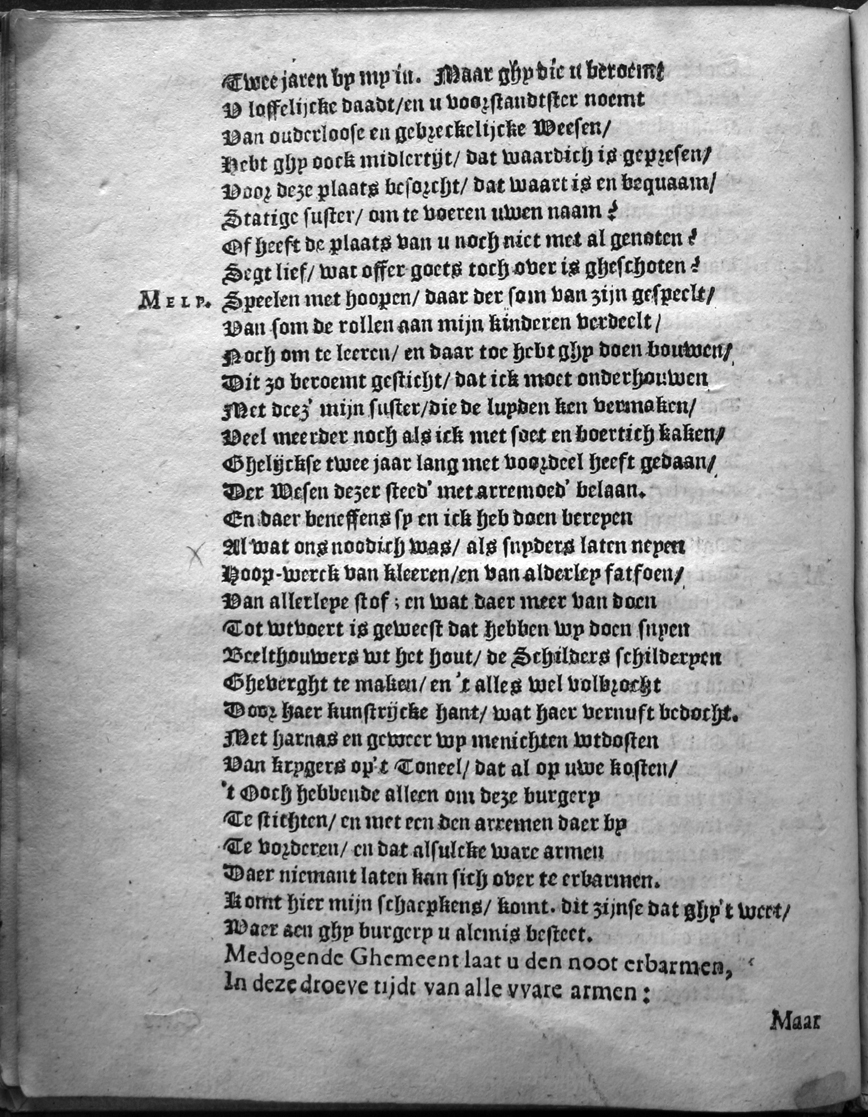 Twee jaren by my in. Maar ghy die u beroemt
V loffelijcke daadt/en u voorstandtster noemt
Van ouderloose en gebreckelijcke Weesen/
Hebt ghy oock midlertijt/ dat waardich is gepresen/
Voor deze plaats besorcht/ dat waart is en bequaam/
Statige suster/ om te voeren uwen naam?
Of heeft de plaats van u noch niet met al genoten?
Segt lief/ wat offer goets toch over is gheschoten?
MELP. Speelen met hoopen/ daar der som van zijn gespeelt/
Van som de rollen aan mijn kinderen verdeelt/
Noch om te leeren/ en daar toe hebt ghy doen bouwen/
Dit zo beroemt gesticht/ dat ick moet onderhouwen
Met deez' mijn suster/die de luyden ken vermaken/
Veel meerder noch als ick met soet en boertich kaken/
Ghelijckse twee jaar lang met voordeel heeft gedaan/
Der Wesen dezer steed' met arremoed' belaan.
En daer beneffens sy en ick heb doen bereyen
Al wat ons noodich was/ als snyders laten neyen
Hoop-werck van kleeren/en van alderley fatsoen/
Van allerleye stof; en wat daer meer van doen
Tot wtvoert is geweest dat hebben wy doen snyen
Beelthouwers wt het hout/ de Schilders schilderyen
Gheverght te maken/ en 't alles wel volbrocht
Door haer kunstrijcke hant/ wat haer vernuft bedocht.
Met harnas en geweer wy menichten wtdosten
Van krygers op't Toneel/ dat al op uwe kosten/
't Ooch hebbende alleen om deze burgery
Te stichten/ en met een den arremen daer by
Te vorderen/ en dat alsulcke ware armen
Daer niemant laten kan sich over te erbarmen.
Komt hier mijn schaepkens/ komt. dit zijnse dat ghy't weet/
Waer aen ghy burgery u alemis besteet.
Medogende Ghemeent laat u den noot erbarmen,
In deze droeve tijdt van alle vvare armen:
Maar